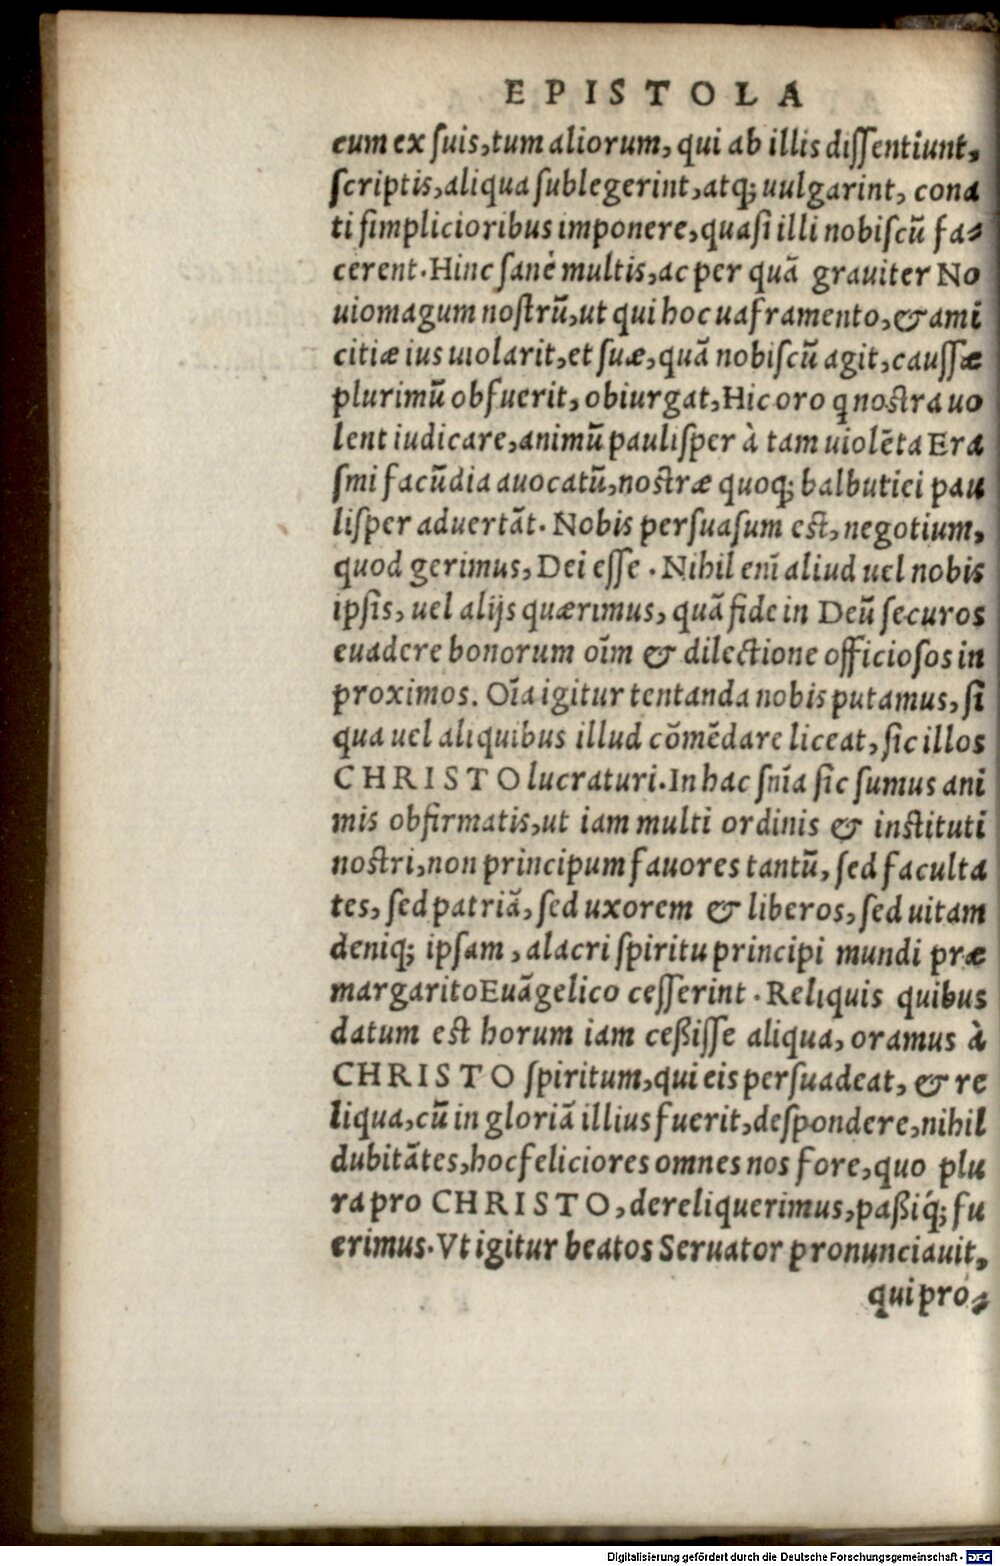 EPISTOLA
eum ex suis, tum aliorum, qui ab illis dissentiunt,
scriptis, aliqua sublegerint, atq; uulgarint, cona
ti simplicioribus imponere, quasi illi nobiscū fa⸗
cerent. Hinc sanè multis, ac per quā grauiter No
uiomagum nostrū, ut qui hoc uaframento, & ami
citiæ ius uiolarit, et suæ, quā nobiscū agit, caussæ
plurimū obfuerit, obiurgat, Hic oro q̄ nostra uo
lent iudicare, animū paulisper à tam uiolēta Era
smi facūdia auocatū, nostræ quoq; balbutiei pau
lisper aduertāt. Nobis persuasum est, negotium,
quod gerimus, Dei esse. Nihil enī aliud uel nobis
ipsis, uel alijs quærimus, quā fide in Deū securos
euadere bonorum oīm & dilectione officiosos in
proximos. Oīa igitur tentanda nobis putamus, si
qua uel aliquibus illud cōmēdare liceat, sic illos
CHRISTO lucraturi. In hac snīa sic sumus ani
mis obfirmatis, ut iam multi ordinis & instituti
nostri, non principum fauores tantū, sed faculta
tes, sed patriā, sed uxorem & liberos, sed uitam
deniq; ipsam, alacri spiritu principi mundi præ
margarito Euāgelico cesserint. Reliquis quibus
datum est horum iam ceßisse aliqua, oramus à
CHRISTO spiritum, qui eis persuadeat, & re
liqua, cū in gloriā illius fuerit, despondere, nihil
dubitātes, hoc feliciores omnes nos fore, quo plu
ra pro CHRISTO, dereliquerimus, paßiq́; fu
erimus. Vt igitur beatos Seruator pronunciauit,
qui pro⸗
Digitalisierung gefördert durch die Deutsche Forschungsgemeinschaft - DFG